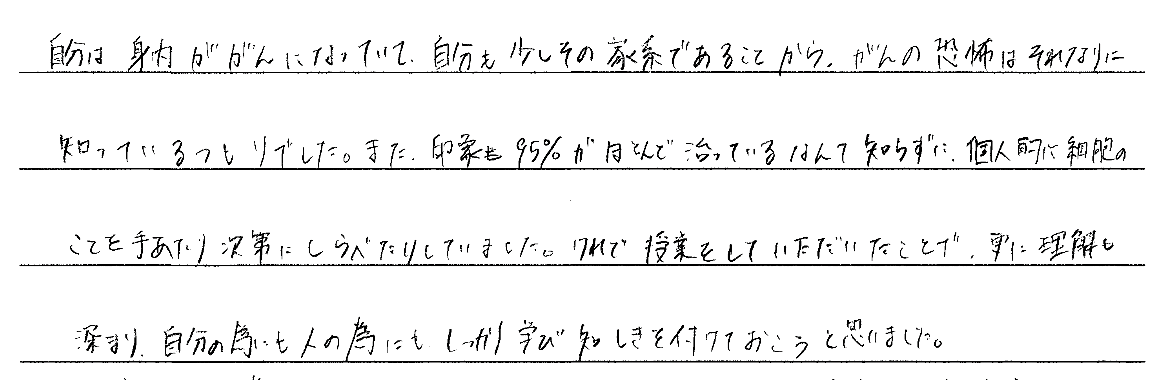 自分は身内ががんになっていて、自分も少しその家系であることから、がんの恐怖はそれなりに
知っているつもりでした。また、印象も95%がほとんど治っているなんて知らずに、個人的に細胞の
ことを手あたり次第にしらべたりしていました。けれど授業をしていただいたことで、更に理解も
深まり、自分の為にも人の為にも、しっかり学び知しきを付けておこうと思いました。